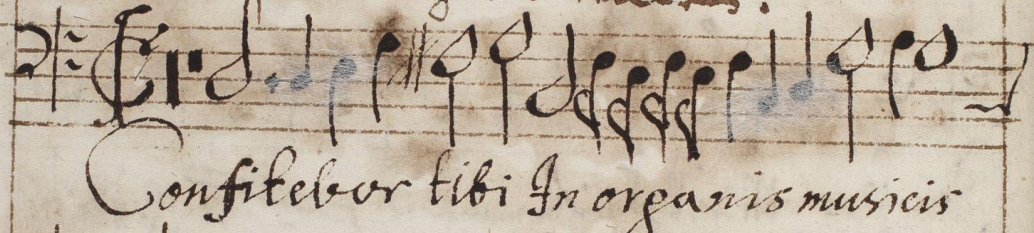 Confitebor tibi In organis musicis